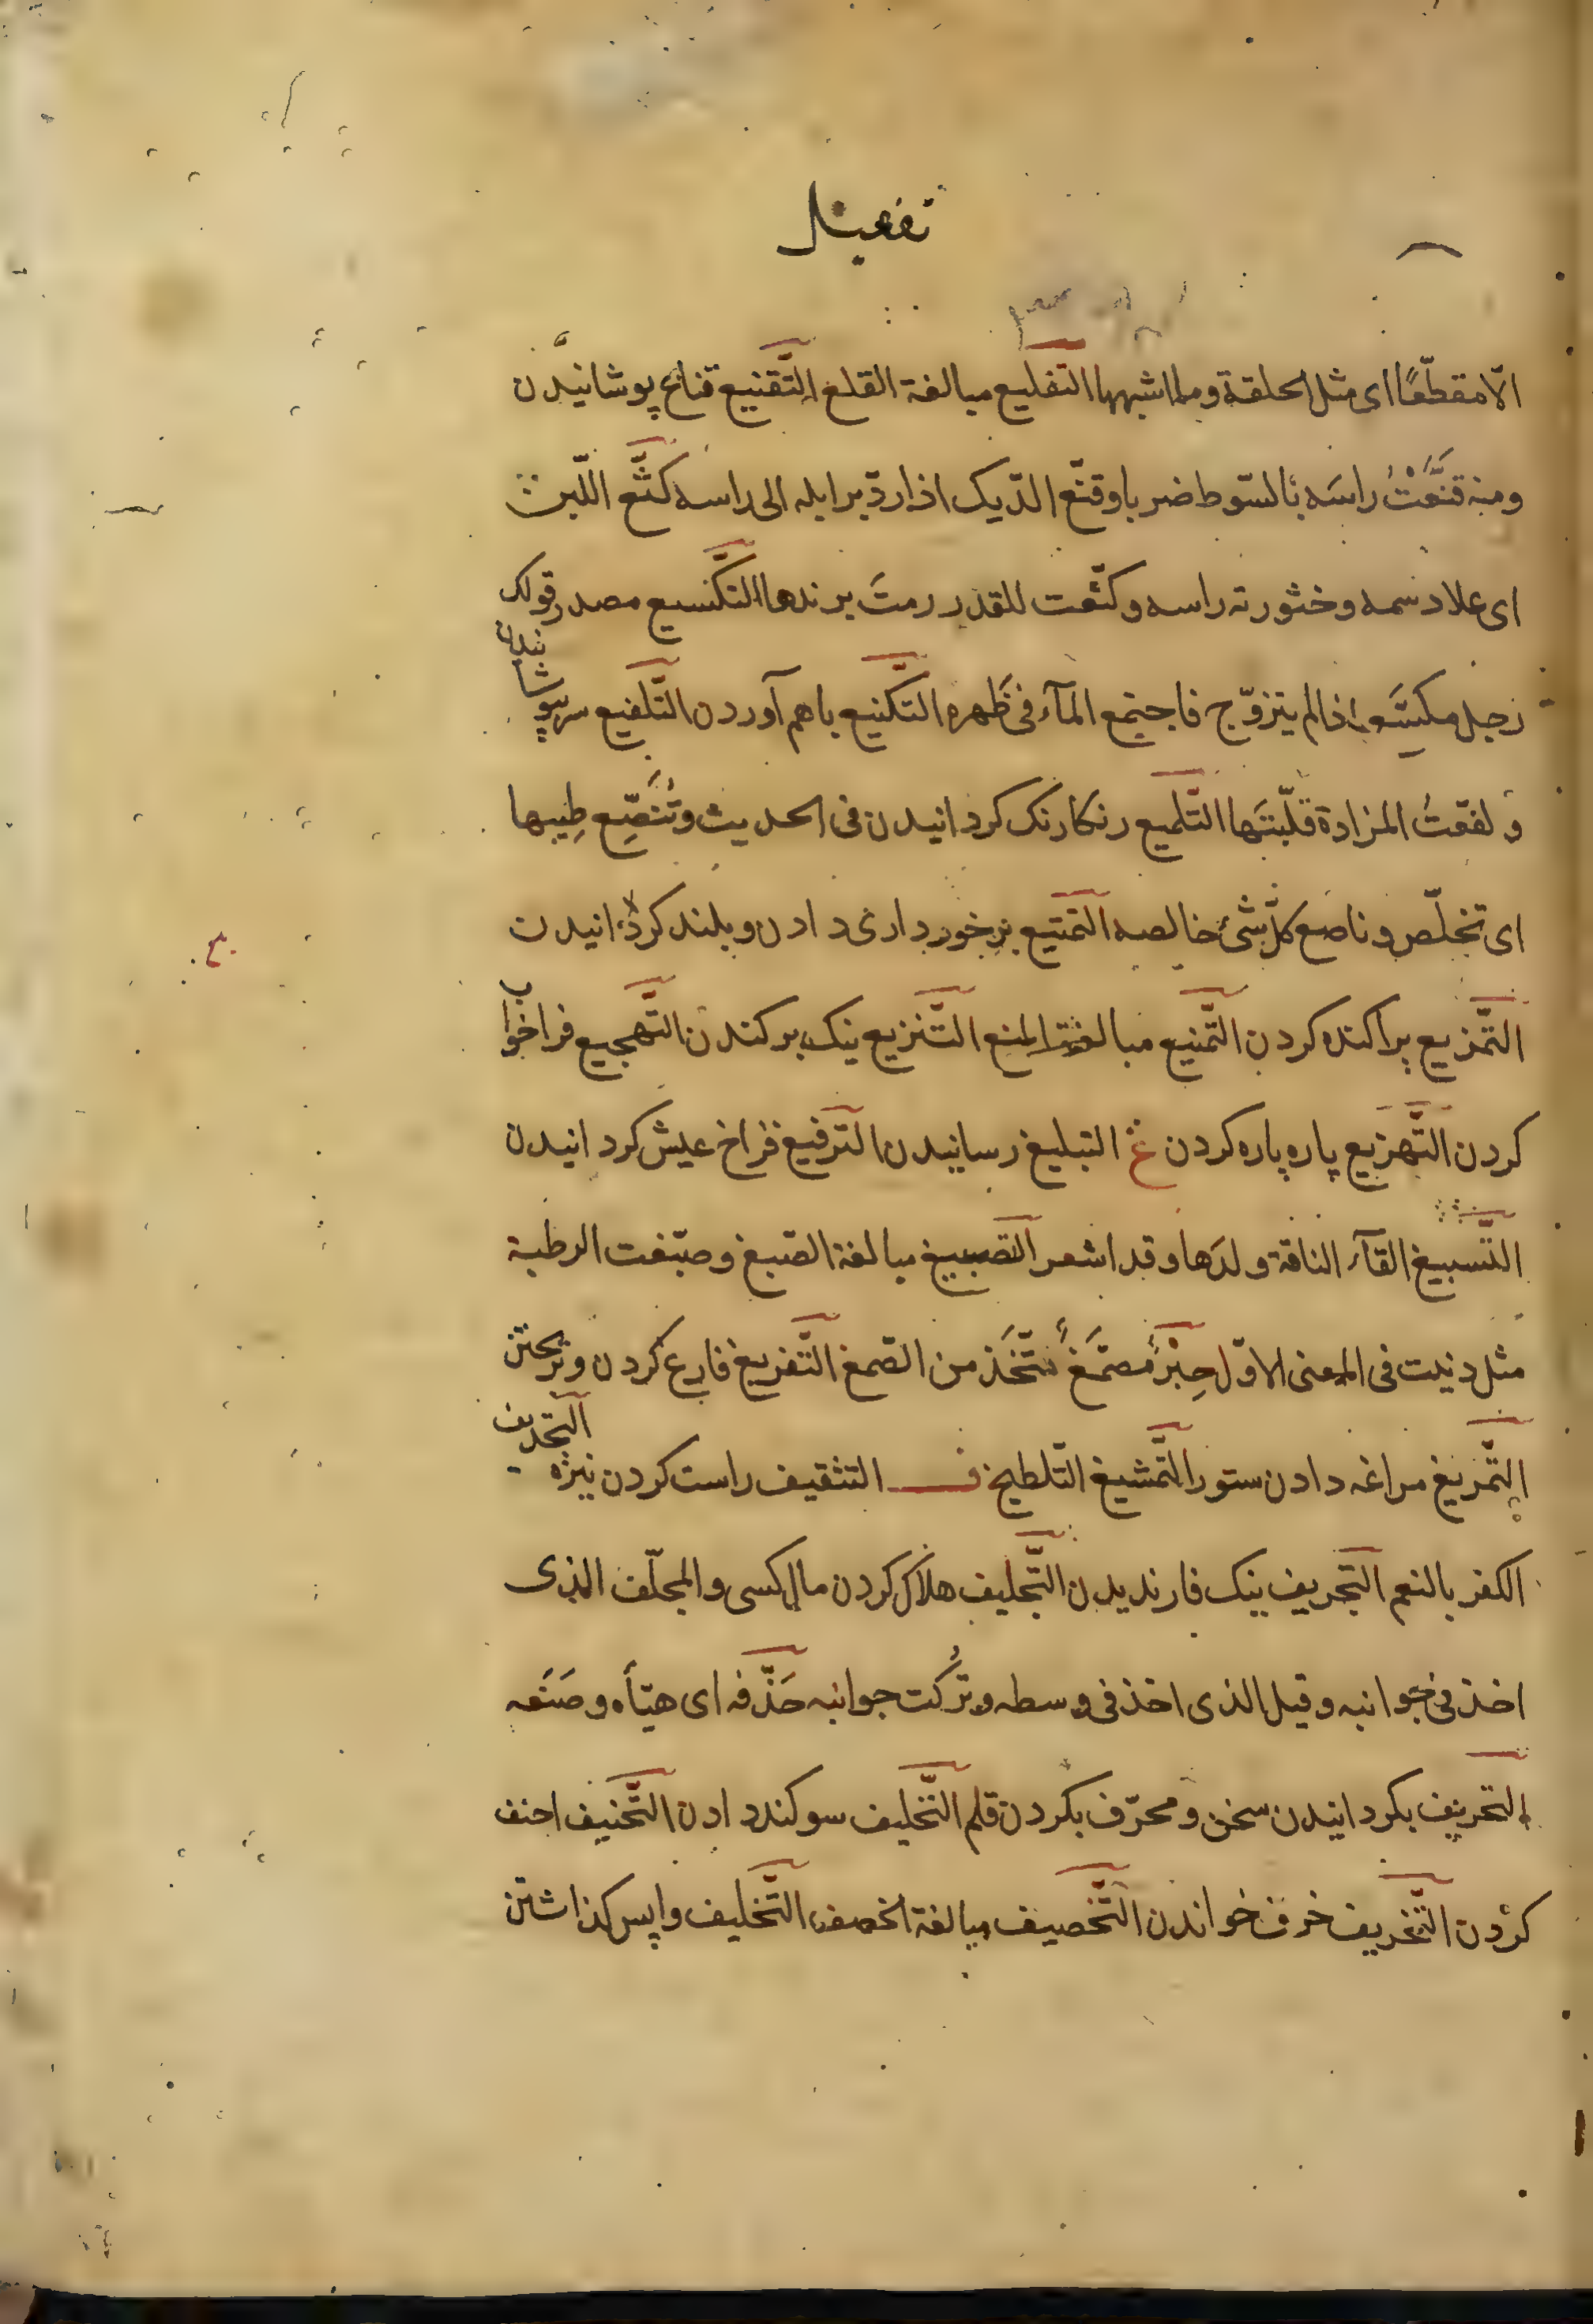 تفعیل
الّا مقطّعًا ای مثل الحلقة وما اشبهها التقلیع مبالغة القلع التّقنیع قناع پوشانیدن
ومنه قنّعْتُ راسَه بالسّوط ضربا وقنّع الدّیک اذا ردّ برایله الی راسه کثّع اللّبن
ای علا دسمه وخثورته راسه وکثّعت للقدر رمتَ بزبدها التکسیع مصدر قولک
رجل مکسّع اذا لم یتزوّج فاجتمع المآء فی ظَهره التّکنیع باهم آوردن التّلفیع سرپوشانیدن
ولفّعتُ المزادة قلّبتَها التّلمیع رنکارنک کردانیدن فی الحدیث وتُنَصِّع طِیبها
ای تخلّص وناصع کلّ شئ خالصه التمتیع برخورداری دادن وبلند کردانیدن
التّمزیع پراکنده کردن التّمنیع مبالغة المنع التّنزیع نیک برکندن التّهجیع فراخواب
کردن التّهزیع پاره پاره کردن غ التبلیغ رسانیدن الترفیغ فراخ عیش کردانیدن
التّسبیغ القآء الناقة ولدَها وقد اشعر التصبیغ مبالغة الصّبغ وصبّغت الرطبة
مثل ذنّبت فی المعنی الاوّل حِبْرٌ مُصمَّغٌ مُتّخَذ من الصّمغ التّفریغ فارغ کردن وریختن
التّمریغ مراغه دادن ستور التّمشیغ التّلطیخ ف التثقیف راست کردن نیزه التجدیف
الکفر بالنعم التّجریف نیک فارندیدن التّجلیف هلاک کردن مال کسی والمجلّف الذی
اخذ فی جوانبه وقیل الذی اخذ فی وسطه وتُرکت جوانبه حَذّفه ای هیّأه وصَنَعه
التحریف بکردانیدن سخن ومحرّف بکردن قلم التّحلیف سوکند دادن التّحنیف احنف
کردن التّخریف خرف خواندن التّخصیف مبالغة الخصف التّخلیف واپس کذاشتن